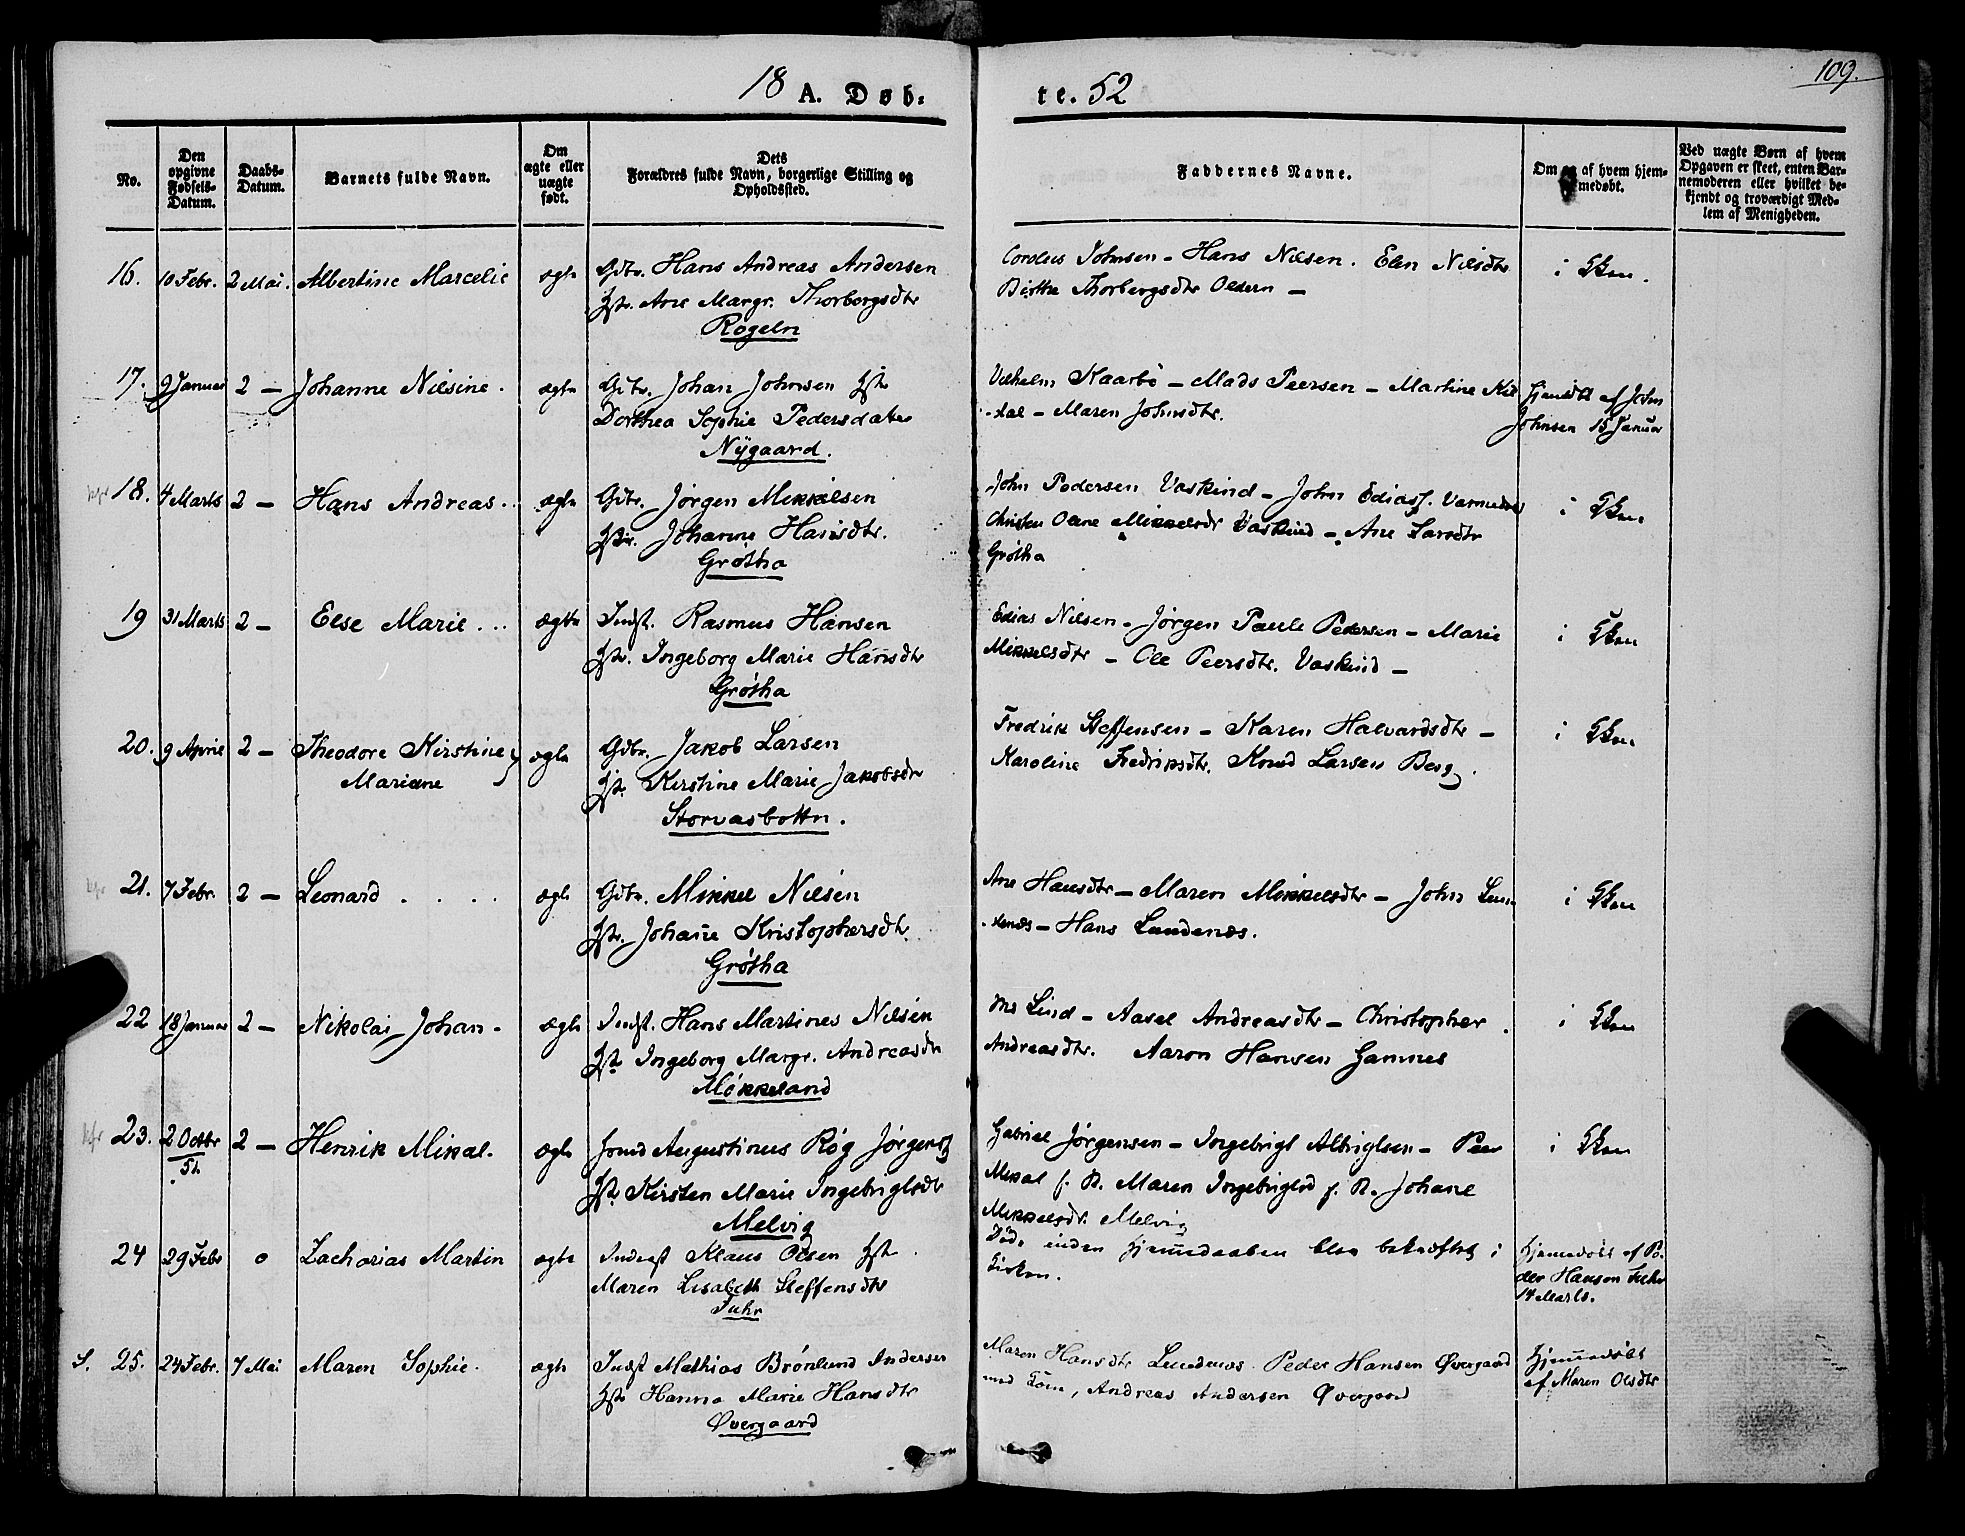 109.
18 A. Døb= te. 52
No.
Den opgivne Fødsels-Datum.
Daabs-Datum.
Barnets fulde Navn.
Om ægte eller uægte født.
Dets Forældres fulde Navn, borgerlige Stilling og Opholdssted.
Faddernes Navne.
Om og af hvem hjemmedøbt.
Ved uægte Børn af hvem Opgaven er skeet, enten Barnemoderen eller hvilket bekjendt og troværdigt Medlem af Menigheden.
16. 10 Febr. 2 Mai. Albertine Marcelie ægte Gdbr. Hans Andreas Andersen
Hstr. Ane Margr. Thorbergsdtr
Rogeln
Cordeus Johnsen - Hans Nilsen. Elen Nilsdtr
Birthe Thorbergsdtr Oldern -
i Kken.
17. 9 Januar 2 - Johanne Nilsine. ægte Gdbr. Johan Johnsen Hstr
Dorthea Sophie Pedersdater
Nygaard.
Vilhelm Kaarbö - Mads Peersen - Martine Kil
-dal - Maren Johnsdtr.
Hjemdbt af John
Johnsen 15 Januar
18. 4 Marts 2 - Hans Andreas.. ægte Gdbr. Jörgen Mikkelsen
Hstr. Johanne Hansdtr.
Grötha
John Pedersen Vaskind - John Ediass.
Oline Mikkelsdr Vaskind - Ane Larsdtr
Grötha
i Kken
19 31 Marts 2 - Else Marie... ægte Indst. Rasmus Hansen
Hstr. Ingeborg Marie Hansdtr
Grötha
Edias Nilsen - Jörgen Paul Pedersen - Marie
Mikkelsdtr - Ole Peersdtr. Vaskind -
i Kken
20. 9 April 2 - Theodore Kirstine ægte Gdbr. Jakob Larsen
Mariane
Hstr. Kirstine Marie Jakobsdr
Storvasbottn.
Fredrik Steffensen - Karen Halvardsdtr -
Karoline Fredriksdtr. Knud Larsen Berg.
i Kken
21. 7 Febr. 2 - Leonard.... ægte Gdbr. Mikkel Nilsen
Hstr. Johane Kristophersdtr.
Grötha
Ane Hansdtr - Maren Mikkelsdtr - John Lun
-denæs - Hans Lundenæs.
i Kken
22 18 Januar 2 - Nikolai Johan - ægte Indst. Hans Martines Nilsen
Hstr Ingeborg Margr. Andreasdtr
Mökkeland
Lind - Aasel Andreasdtr - Christopher
Andreasdtr. Aaron Hansen Gamnes
i Kken
23. 2 Octbr 51. 2 - Henrik Mikal. ægte Augustinus Rög Jörgens
Hstr Kirsten Marie Ingebrigtsdtr
Melvig
Gabriel Jörgensen - Ingebrigt Albrigtsen - Peer
Mikal f. B. Maren Ingebrigtsd f. B. Johane
Mikkelsdr. Melvig
i Kken
24 29 Febr o Zacharias Martin ægte Inderst Klaus Olsen Hstr.
Maren Lisabeth Steffensdtr
Fuhr
Död inden Hjemmedaaben blev bekræftet i
Kirken.
Hjemmdöbt af Pe-
der Hansen Fuhr
14 Marts.
S. 25. 24 Febr. 7 Mai Maren Sophie. ægte Indst Mathias Brönlund Andersen
Hstr Hanna Marie Hansdtr
Övergaard
Maren Hansdtr Lundenæs. Peder Hansen Övergaard
med Kone, Andreas Andersen Övergaard
Hjemmedöbt
af Maren Olsdtr